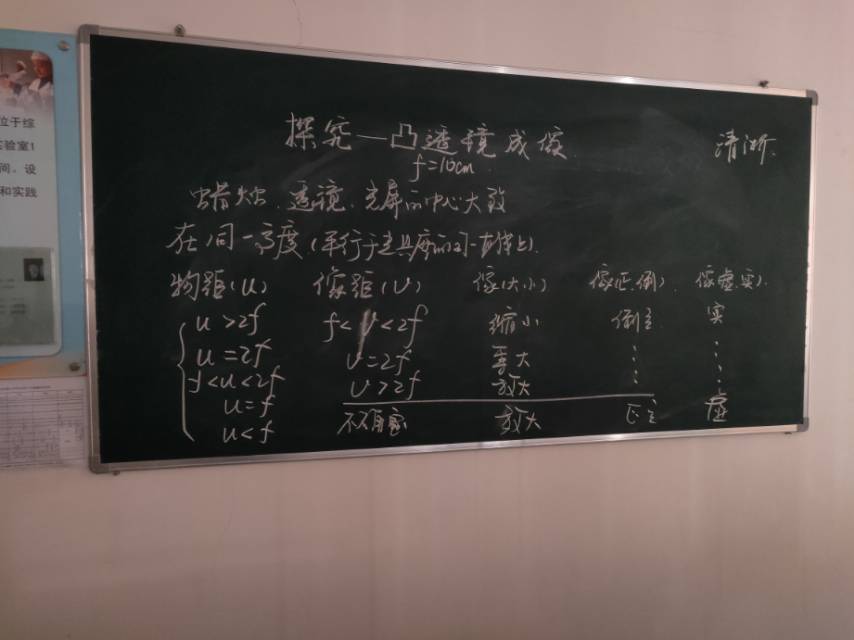 位于综
实验室1
间。设
和实践
探究—凸透镜成像
清晰
f=10cm
蜡烛、透镜、光屏的中心大致
在同一高度(平行于光具座的同一直线上).
物距(u) 像距(v) 像(大小) 像(正倒) 像(虚实)
u>2f f<v<2f 缩小 倒立 实
u=2f v=2f 等大 ⋮ ⋮
f<u<2f v>2f 放大 ⋮ ⋮
u=f
u<f 放大 正立 虚